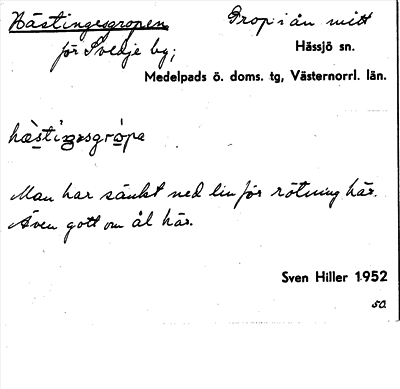 Hästingesgropen Grop i ån mitt
för Svedje by; Hässjö sn.
Medelpads ö. doms. tg, Västernorrl. län.
hästingesgropa
Man har sänkt ned lin för rötning här.
Även gott om ål här.
Sven Hiller 1952